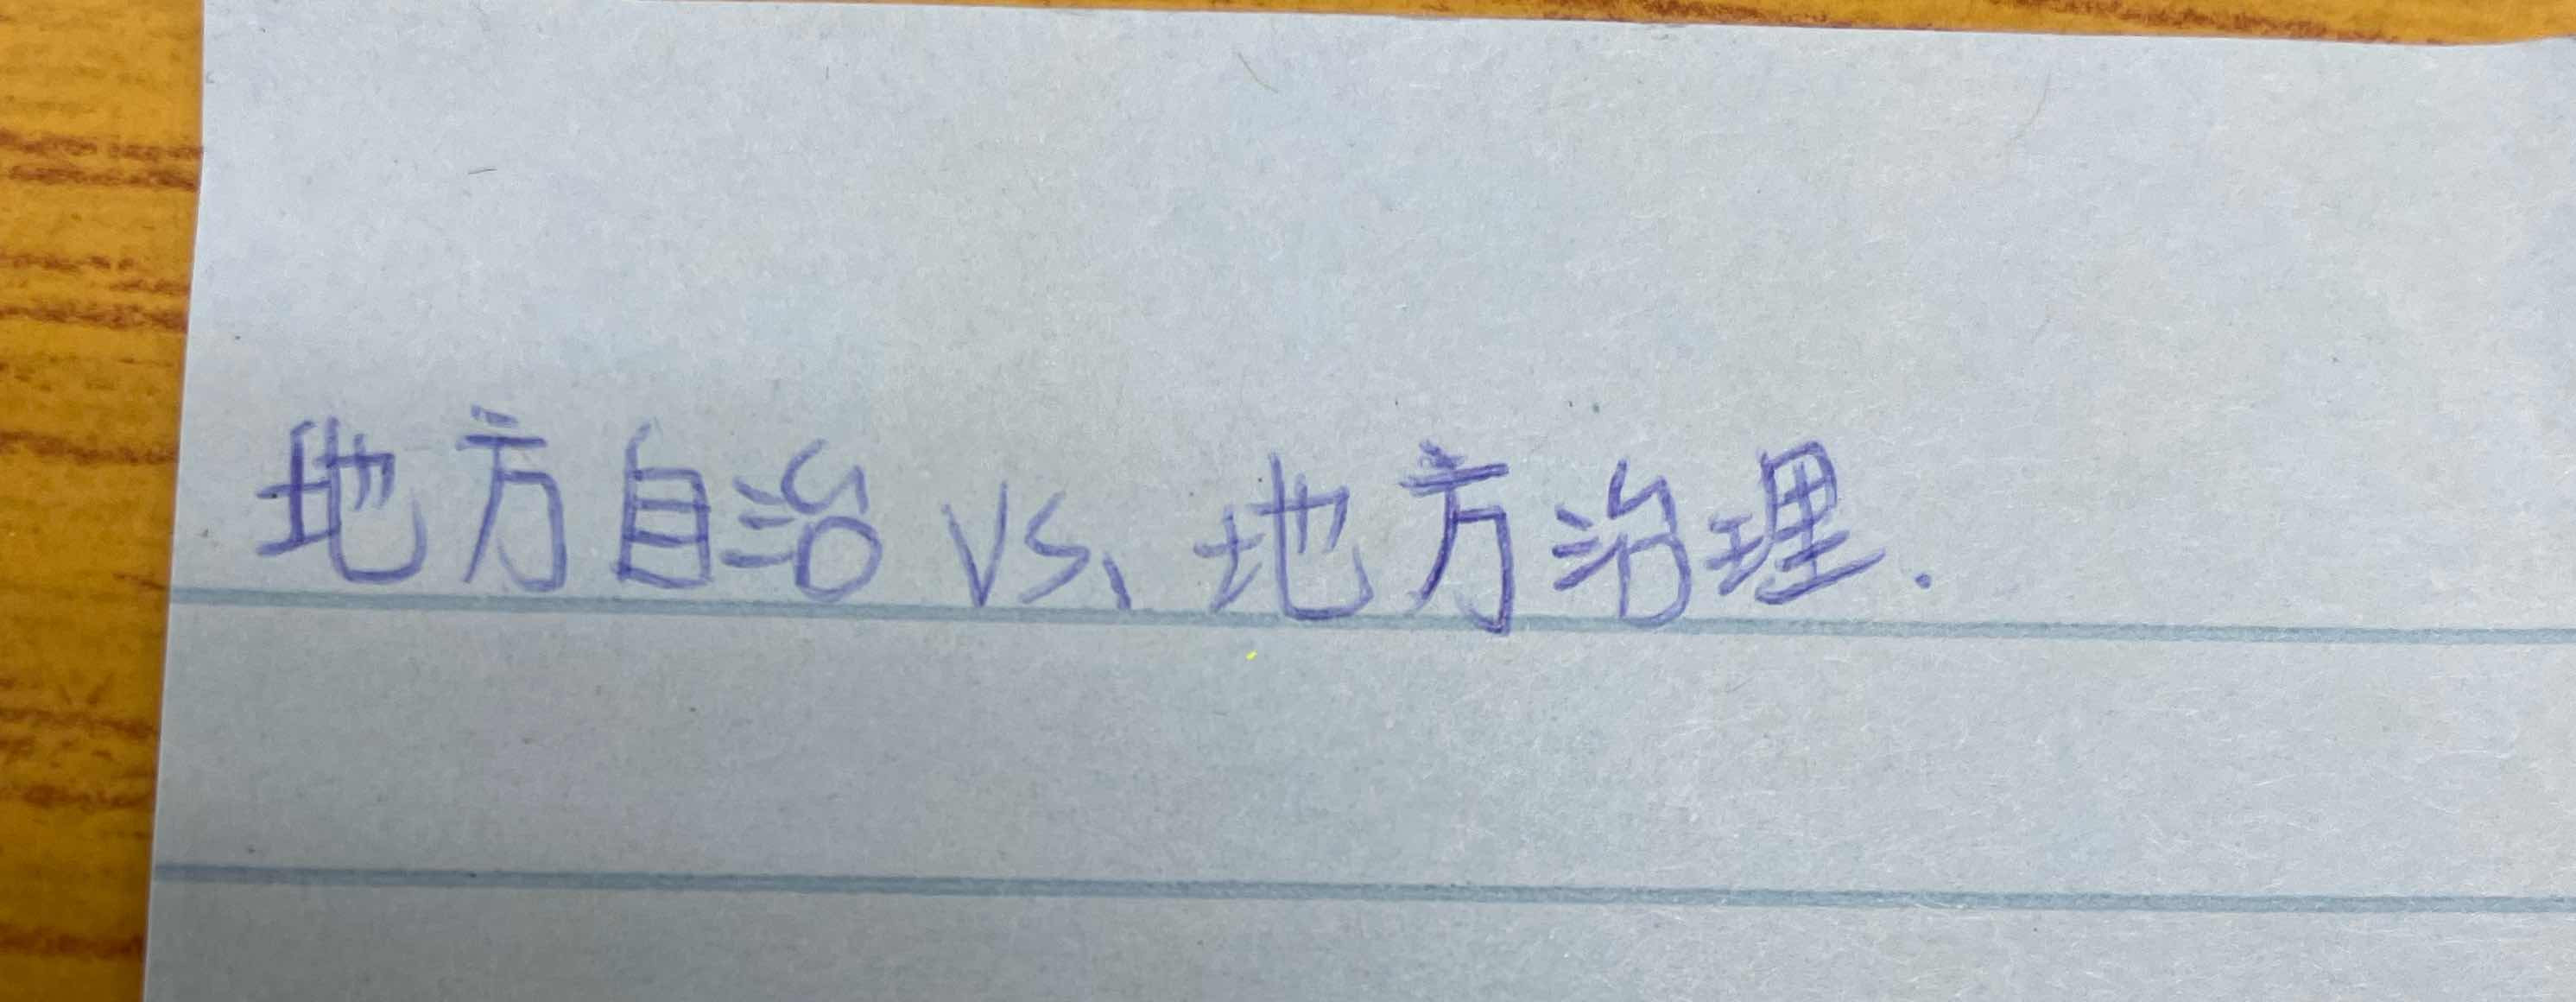 地方自治 vs. 地方治理.